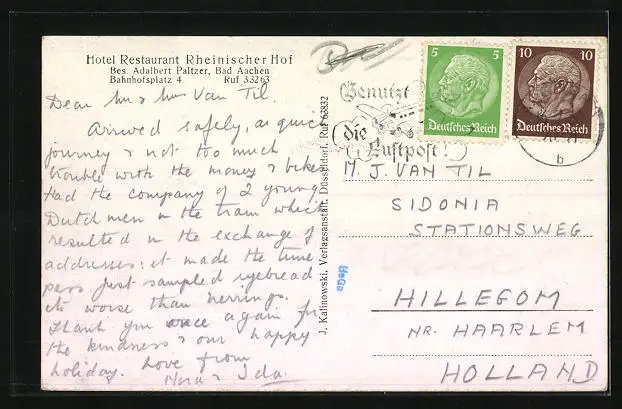 Hotel Restaurant Rheinischer Hof
Bes. Adalbert Paltzer, Bad Aachen
Bahnhofsplatz 4 Ruf 33263
Dear Mr & Mrs Van Til.
Arrived safely, a quick
journey & not too much
trouble with the money & bikes.
Had the company of 2 young
Dutch men in the train which
resulted in the exchange of
addresses: it made the time
pass. Just sampled ryebread
its worse than herrings.
Thank you once again for
the kindness & our happy
holiday. Love from
Nora & Ida.
J. Kalinowski, Verlagsanstalt, Düsseldorf, Ruf 63832
HeGa
5 5
Deutsches Reich
10 10
Deutsches Reich
Benutzt
die
Luftpost!
b
M. J. VAN TIL
SIDONIA
STATIONSWEG
HILLEGOM
NR. HAARLEM
HOLLAND